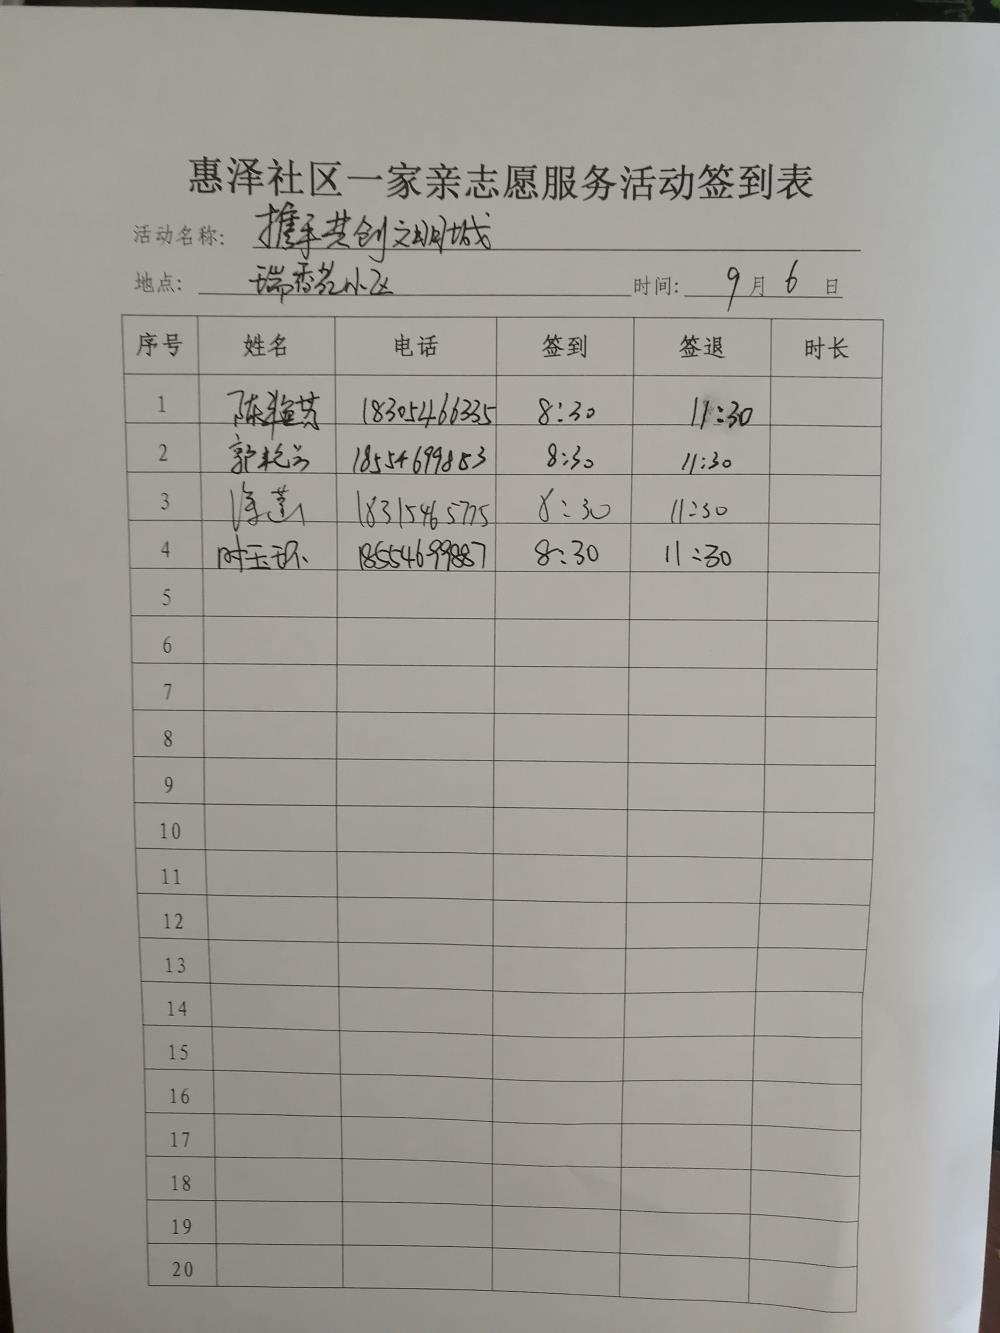 惠泽社区一家亲志愿服务活动签到表
活动名称: 携手共创文明城
地点: 瑞香苑小区 时间: 9月6日
序号 姓名 电话 签到 签退 时长
1 陈 18305466335 8:30 11:30
2 郭艳芳 18554699853 8:30 11:30
3 徐莲 18315465775 8:30 11:30
4 时玉环 18554699887 8:30 11:30
5
6
7
8
9
10
11
12
13
14
15
16
17
18
19
20